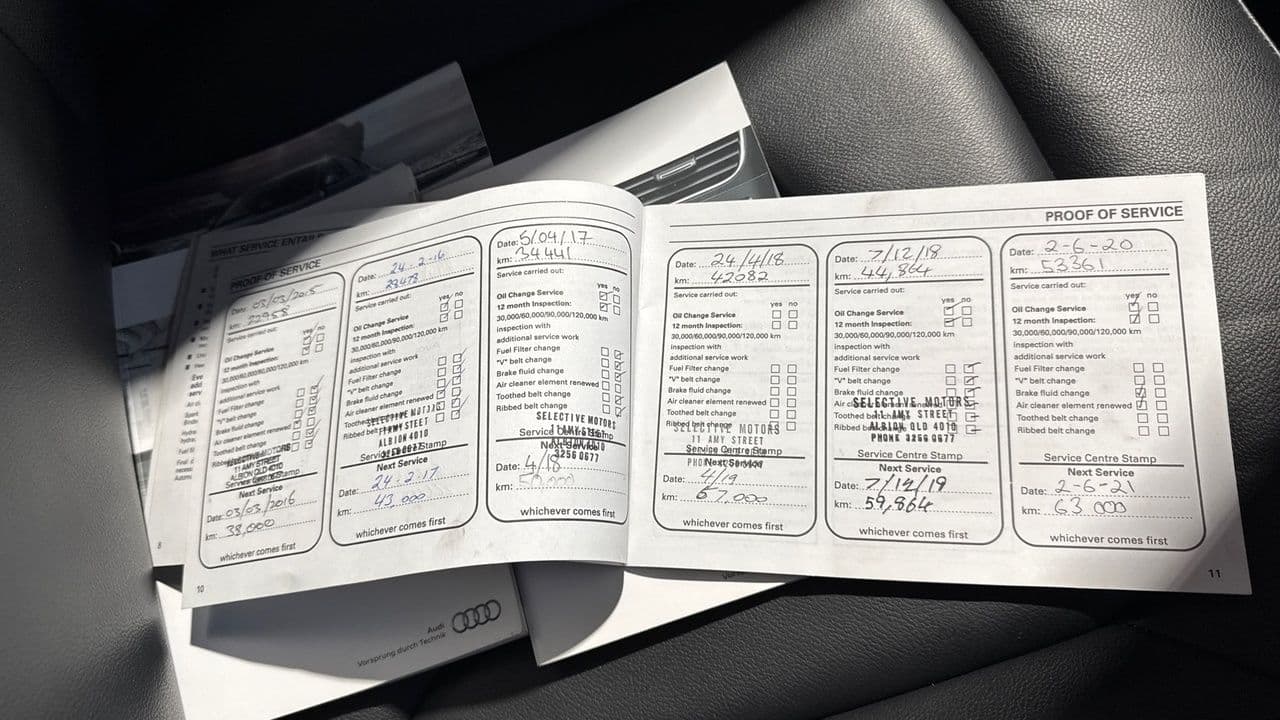 WHAT SERVICE ENTAIL
PROOF OF SERVICE
Date: 03/03/2015
km: 22958
Service carried out:
yes no
Oil Change Service
12 month Inspection:
30,000/60,000/90,000/120,000 km
inspection with
additional service work
Fuel Filter change
"V" belt change
Brake fluid change
Air cleaner element renewed
Toothed belt change
Ribbed
SELECTIVE MOTORS
11 AMY STREET
ALBION QLD 4010
Service Stamp
Next Service
Date: 03/03/2016
km: 38,000
whichever comes first
10
Date: 24-2-16
km: 28478
Service carried out:
yes no
Oil Change Service
12 month Inspection:
30,000/60,000/90,000/120,000 km
inspection with
additional service work
Fuel Filter change
"V" belt change
Brake fluid change
Air cleaner element renewed
Toothed
Ribbed belt
SELECTIVE MOTORS
11 AMY STREET
ALBION 4010
3256 0677
Service Stamp
Next Service
Date: 24-2-17
km: 43,000
whichever comes first
Date: 5/04/17
km: 34441
Service carried out:
yes no
Oil Change Service
12 month Inspection:
30,000/60,000/90,000/120,000 km
inspection with
additional service work
Fuel Filter change
"V" belt change
Brake fluid change
Air cleaner element renewed
Toothed belt change
Ribbed belt change
SELECTIVE MOTORS
11 AMY STREET
ALBION 4010
3256 0677
Next Service
Date: 4/18
km: 50,000
whichever comes first
PROOF OF SERVICE
Date: 24/4/18
km: 42082
Service carried out:
yes no
Oil Change Service
12 month Inspection:
30,000/60,000/90,000/120,000 km
inspection with
additional service work
Fuel Filter change
"V" belt change
Brake fluid change
Air cleaner element renewed
Toothed belt change
Ribbed belt change
SELECTIVE MOTORS
11 AMY STREET
Service Centre Stamp
Next Service
Date: 4/19
km: 57,000
whichever comes first
Date: 7/12/18
km: 44,864
Service carried out:
yes no
Oil Change Service
12 month Inspection:
30,000/60,000/90,000/120,000 km
inspection with
additional service work
Fuel Filter change
"V" belt change
Brake fluid change
SELECTIVE MOTORS
11 AMY STREET
ALBION, QLD 4010
PHONE 3256 0677
Toothed
Ribbed belt change
Service Centre Stamp
Next Service
Date: 7/12/19
km: 59,864
whichever comes first
Date: 2-6-20
km: 53361
Service carried out:
yes no
Oil Change Service
12 month Inspection:
30,000/60,000/90,000/120,000 km
inspection with
additional service work
Fuel Filter change
"V" belt change
Brake fluid change
Air cleaner element renewed
Toothed belt change
Ribbed belt change
Service Centre Stamp
Next Service
Date: 2-6-21
km: 63 000
whichever comes first
11
Audi
Vorsprung durch Technik